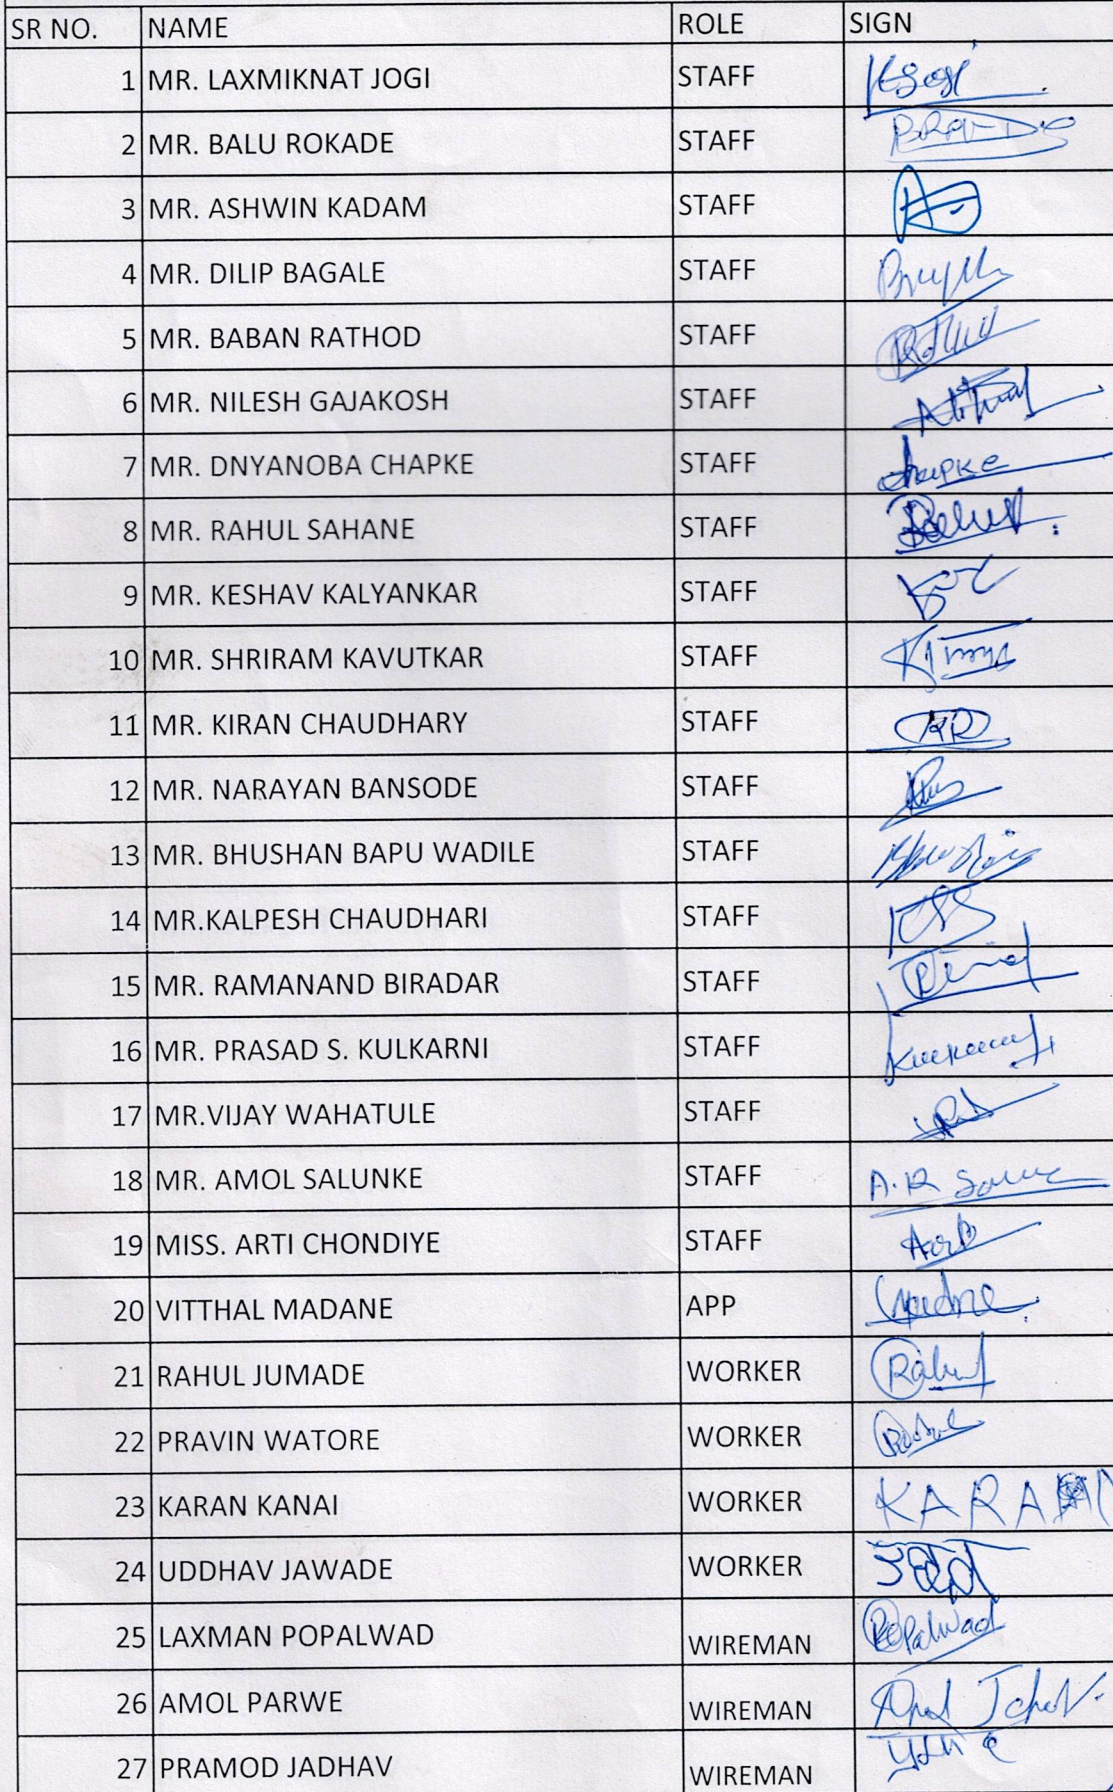 SR NO. NAME ROLE SIGN
1 MR. LAXMIKNAT JOGI STAFF
2 MR. BALU ROKADE STAFF
3 MR. ASHWIN KADAM STAFF
4 MR. DILIP BAGALE STAFF
5 MR. BABAN RATHOD STAFF
6 MR. NILESH GAJAKOSH STAFF
7 MR. DNYANOBA CHAPKE STAFF chapke
8 MR. RAHUL SAHANE STAFF
9 MR. KESHAV KALYANKAR STAFF
10 MR. SHRIRAM KAVUTKAR STAFF
11 MR. KIRAN CHAUDHARY STAFF
12 MR. NARAYAN BANSODE STAFF
13 MR. BHUSHAN BAPU WADILE STAFF
14 MR.KALPESH CHAUDHARI STAFF
15 MR. RAMANAND BIRADAR STAFF
16 MR. PRASAD S. KULKARNI STAFF
17 MR.VIJAY WAHATULE STAFF
18 MR. AMOL SALUNKE STAFF
19 MISS. ARTI CHONDIYE STAFF
20 VITTHAL MADANE APP
21 RAHUL JUMADE WORKER Rahul
22 PRAVIN WATORE WORKER
23 KARAN KANAI WORKER
24 UDDHAV JAWADE WORKER
25 LAXMAN POPALWAD WIREMAN Popalwad
26 AMOL PARWE WIREMAN
27 PRAMOD JADHAV WIREMAN